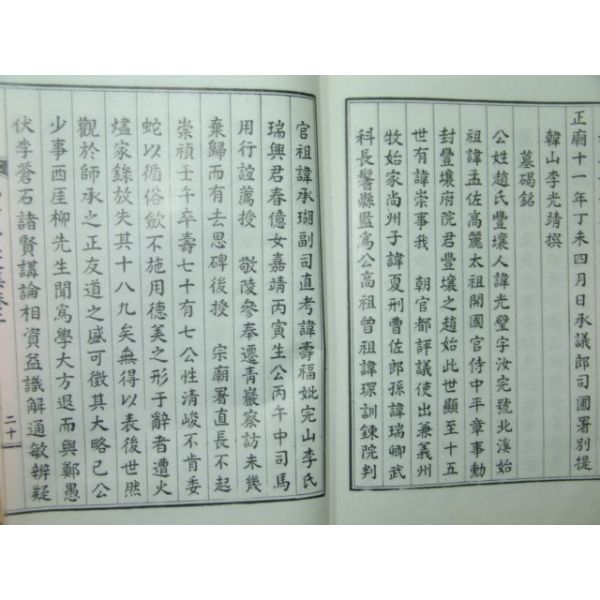 正廟十一年丁未四月日承議郎司圃署別提
韓山李光靖撰
墓碣銘
公姓趙氏豐壤人諱光璧字汝完號北溪始
祖諱孟佐高麗太祖開國官侍中平章事勳
封豐壤府院君豐壤之趙始此世顯至十五
世有諱崇事我 朝官都評議使出兼義州
牧始家尚州子諱夏刑曹佐郎孫諱瑞卿武
科長鬐縣監寔公高祖曾祖諱琛訓鍊院判
官祖諱承瑚副司直考諱壽福妣完山李氏
瑞興君春億女嘉靖丙寅生公丙午中司馬
用行誼薦授 敬陵參奉遷青巖察訪未幾
棄歸而有去思碑後授 宗廟署直長不起
崇禎壬午卒壽七十有七公性清峻不肯委
蛇以循俗歛不施用德美之形于辭者遭火
燼家錄放失其十八九矣無得以表後世然
觀於師承之正友道之盛可徵其大略已公
少事西厓柳先生聞爲學大方退而與鄭愚
伏李蒼石諸賢講論相資益識解通敏辨疑
二十